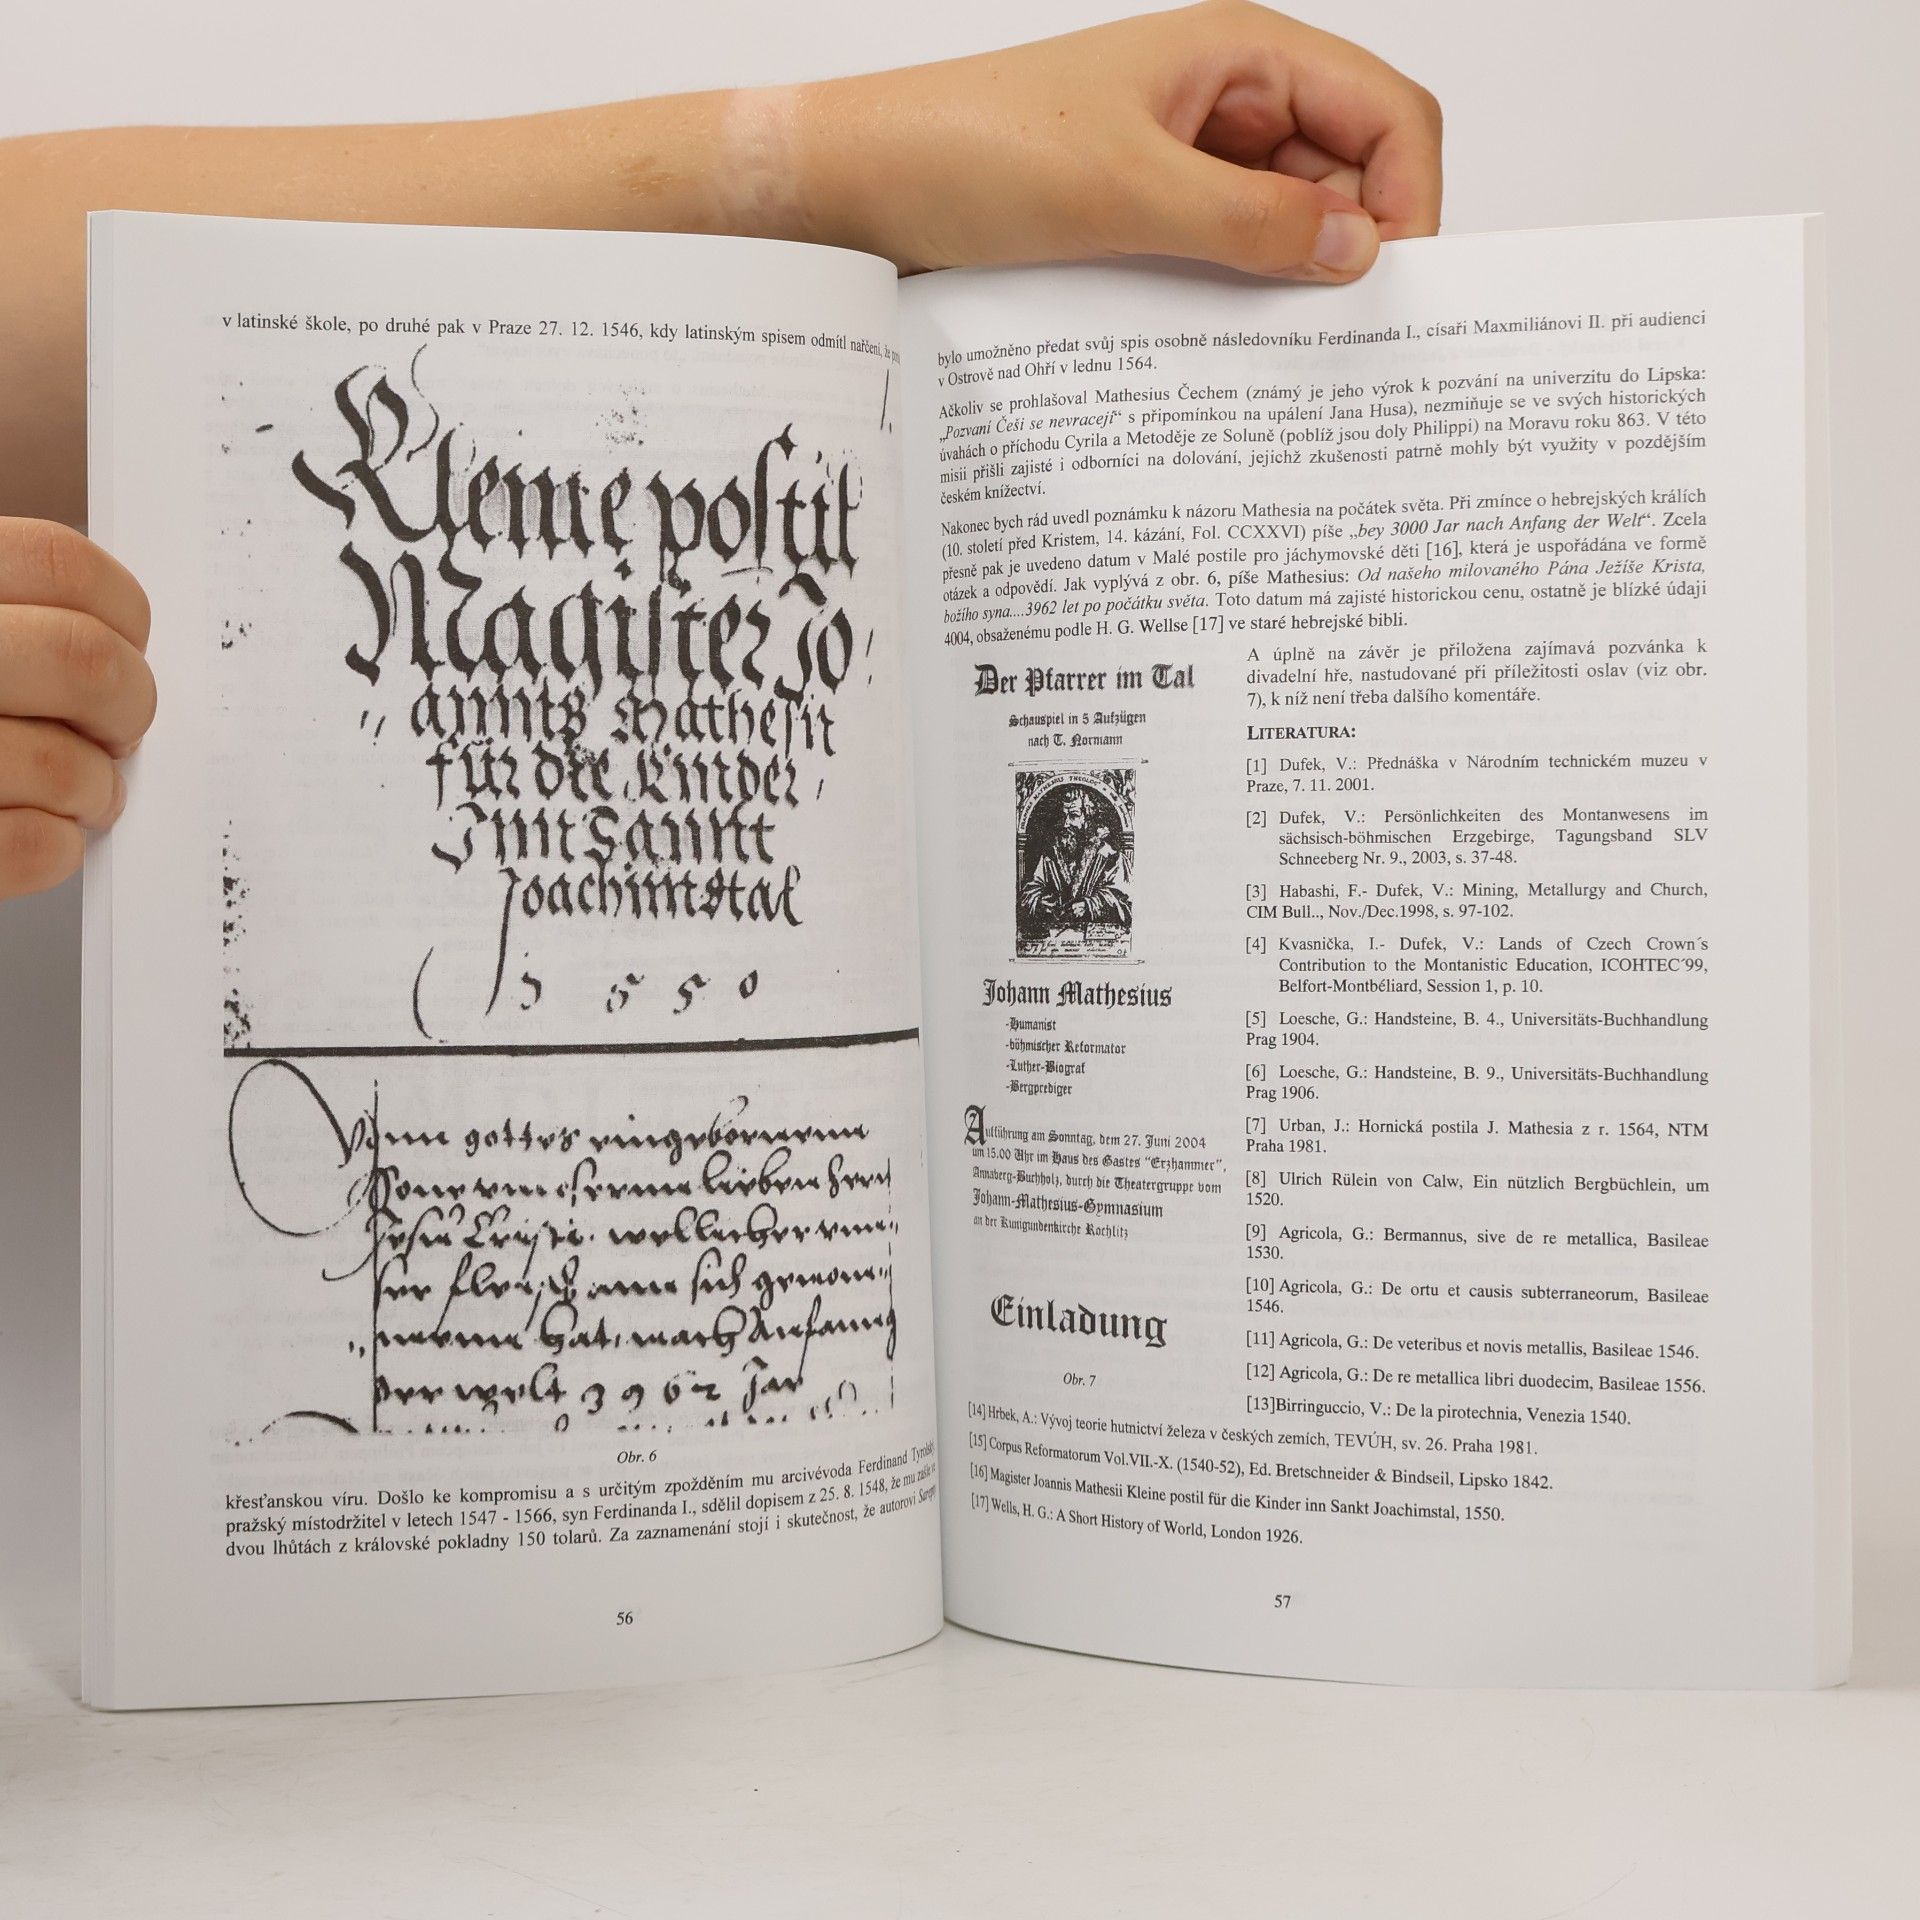 v latinské škole, po druhé pak v Praze 27. 12. 1546, kdy latinským spisem odmítl nařčení, že
Kleine postil
Magister Jo
annis Mathesii
für die Kinder
Inn Sannt
Joachimstal
1 5 5 0
Vonn gottes eingebornenn
Sone unnserm lieben Herrn
Jesu Cristi. wellicher unn
ser fleisch ann sich genom
menn hat, nach Anfanng
der welt 3962 Jar
Obr. 6
křesťanskou víru. Došlo ke kompromisu a s určitým zpožděním mu arcivévoda Ferdinand Tyrolský,
pražský místodržitel v letech 1547 - 1566, syn Ferdinanda I., sdělil dopisem z 25. 8. 1548, že mu zašle ve
dvou lhůtách z královské pokladny 150 tolarů. Za zaznamenání stojí i skutečnost, že autorovi Sarepty
56
bylo umožněno předat svůj spis osobně následovníku Ferdinanda I., císaři Maxmiliánovi II. při audienci
v Ostrově nad Ohří v lednu 1564.
Ačkoliv se prohlašoval Mathesius Čechem (známý je jeho výrok k pozvání na univerzitu do Lipska:
„Pozvaní Češi se nevracejí“ s připomínkou na upálení Jana Husa), nezmiňuje se ve svých historických
úvahách o příchodu Cyrila a Metoděje ze Soluně (poblíž jsou doly Philippi) na Moravu roku 863. V této
misii přišli zajisté i odborníci na dolování, jejichž zkušenosti patrně mohly být využity v pozdějším
českém knížectví.
Nakonec bych rád uvedl poznámku k názoru Mathesia na počátek světa. Při zmínce o hebrejských králích
(10. století před Kristem, 14. kázání, Fol. CCXXVI) píše „bey 3000 Jar nach Anfang der Welt“. Zcela
přesně pak je uvedeno datum v Malé postile pro jáchymovské děti [16], která je uspořádána ve formě
otázek a odpovědí. Jak vyplývá z obr. 6, píše Mathesius: Od našeho milovaného Pána Ježíše Krista,
božího syna....3962 let po počátku světa. Toto datum má zajisté historickou cenu, ostatně je blízké údaji
4004, obsaženému podle H. G. Wellse [17] ve staré hebrejské bibli.
Der Pfarrer im Tal
Schauspiel in 5 Aufzügen
nach T. Normann
Johann Mathesius
-Humanist
-böhmischer Reformator
-Luther-Biograf
-Bergprediger
Aufführung am Sonntag, dem 27. Juni 2004
um 15.00 Uhr im Haus des Gastes "Erzhammer",
Annaberg-Buchholz, durch die Theatergruppe vom
Johann-Mathesius-Gymnasium
an der Kunigundenkirche Rochlitz
Einladung
Obr. 7
A úplně na závěr je přiložena zajímavá pozvánka k
divadelní hře, nastudované při příležitosti oslav (viz obr.
7), k níž není třeba dalšího komentáře.
LITERATURA:
[1] Dufek, V.: Přednáška v Národním technickém muzeu v
Praze, 7. 11. 2001.
[2] Dufek, V.: Persönlichkeiten des Montanwesens im
sächsisch-böhmischen Erzgebirge, Tagungsband SLV
Schneeberg Nr. 9., 2003, s. 37-48.
[3] Habashi, F.- Dufek, V.: Mining, Metallurgy and Church,
CIM Bull.., Nov./Dec.1998, s. 97-102.
[4] Kvasnička, I.- Dufek, V.: Lands of Czech Crown´s
Contribution to the Montanistic Education, ICOHTEC´99,
Belfort-Montbéliard, Session 1, p. 10.
[5] Loesche, G.: Handsteine, B. 4., Universitäts-Buchhandlung
Prag 1904.
[6] Loesche, G.: Handsteine, B. 9., Universitäts-Buchhandlung
Prag 1906.
[7] Urban, J.: Hornická postila J. Mathesia z r. 1564, NTM
Praha 1981.
[8] Ulrich Rülein von Calw, Ein nützlich Bergbüchlein, um
1520.
[9] Agricola, G.: Bermannus, sive de re metallica, Basileae
1530.
[10] Agricola, G.: De ortu et causis subterraneorum, Basileae
1546.
[11] Agricola, G.: De veteribus et novis metallis, Basileae 1546.
[12] Agricola, G.: De re metallica libri duodecim, Basileae 1556.
[13]Birringuccio, V.: De la pirotechnia, Venezia 1540.
[14] Hrbek, A.: Vývoj teorie hutnictví železa v českých zemích, TEVÚH, sv. 26. Praha 1981.
[15] Corpus Reformatorum Vol.VII.-X. (1540-52), Ed. Bretschneider & Bindseil, Lipsko 1842.
[16] Magister Joannis Mathesii Kleine postil für die Kinder inn Sankt Joachimstal, 1550.
[17] Wells, H. G.: A Short History of World, London 1926.
57